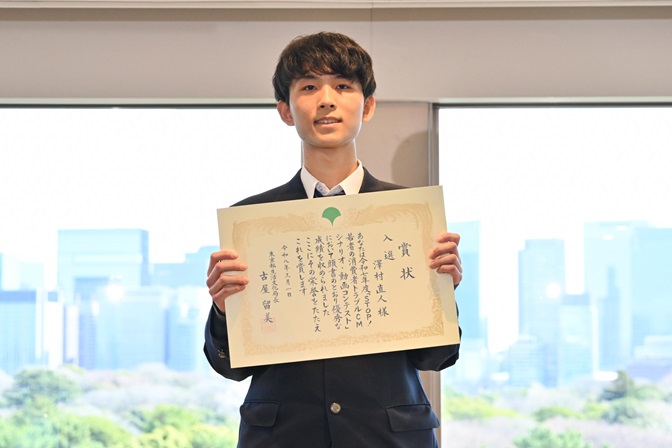 賞状
入選
澤村直人様
あなたは令和七年度「STOP!
若者の消費者トラブルCM
シナリオ・動画コンテスト」
において頭書のとおり優秀な
成績を収められました
ここにその栄誉をたたえ
これを賞します
令和八年三月一日
東京都生活文化局長
古屋留美